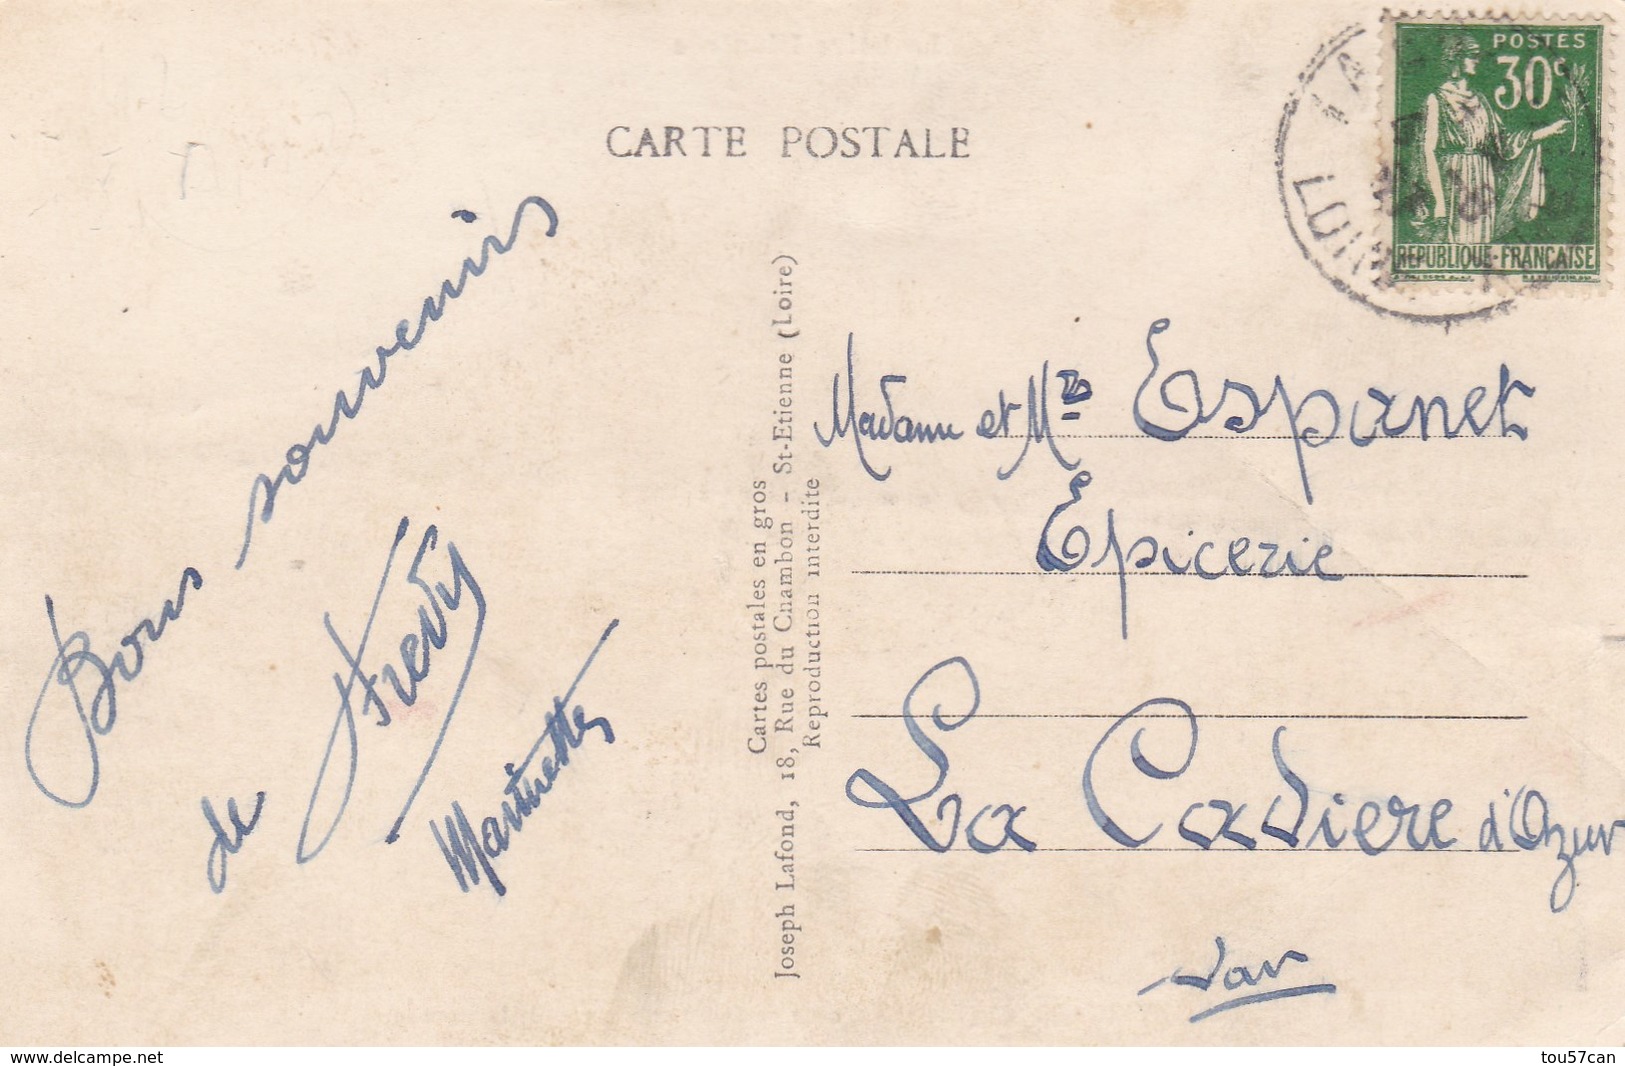 CARTE POSTALE
POSTES
30c
REPUBLIQUE-FRANÇAISE
LOIRE
Bons souvenirs
de Fredy
Martinettes
Cartes postales en gros
Joseph Lafond, 18, Rue du Chambon - St-Etienne (Loire)
Reproduction interdite
Madame et Mr Espanet
Epicerie
La Cadiere d'Azur
Var
delcampe.net
tou57can